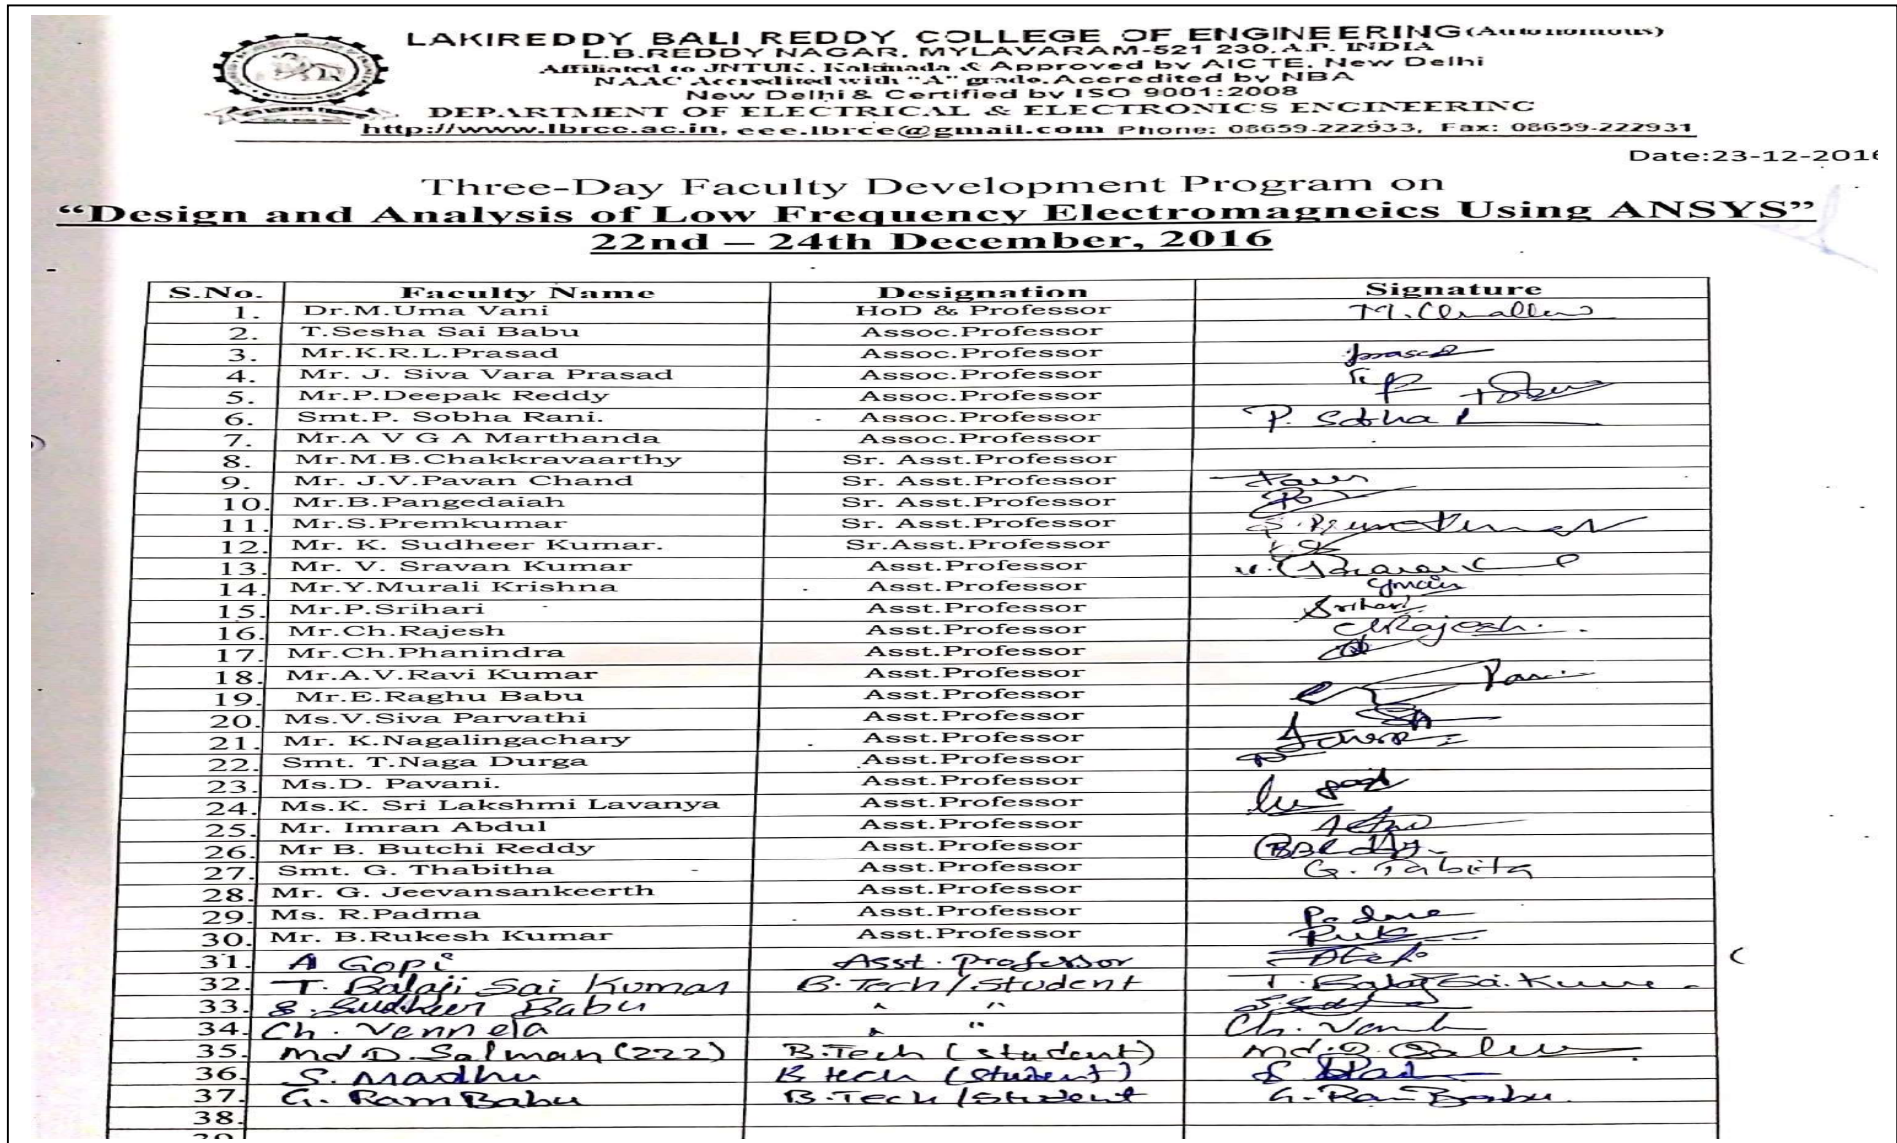 LAKIREDDY BALI REDDY COLLEGE OF ENGINEERING (Autonomous)
L.B.REDDY NAGAR, MYLAVARAM-521 230, A.P. INDIA
Affiliated to JNTUK, Kakinada & Approved by AICTE, New Delhi
NAAC Accredited with "A" grade, Accredited by NBA
New Delhi & Certified by ISO 9001:2008
DEPARTMENT OF ELECTRICAL & ELECTRONICS ENGINEERING
http://www.lbrce.ac.in, eee.lbrce@gmail.com Phone: 08659-222933, Fax: 08659-222931
Date:23-12-2016
Three-Day Faculty Development Program on
“Design and Analysis of Low Frequency Electromagneics Using ANSYS”
22nd – 24th December, 2016
S.No. Faculty Name Designation Signature
1. Dr.M.Uma Vani HoD & Professor
2. T.Sesha Sai Babu Assoc.Professor
3. Mr.K.R.L.Prasad Assoc.Professor prasad
4. Mr. J. Siva Vara Prasad Assoc.Professor
5. Mr.P.Deepak Reddy Assoc.Professor
6. Smt.P. Sobha Rani. Assoc.Professor P. Sobha
7. Mr.A V G A Marthanda Assoc.Professor
8. Mr.M.B.Chakkravaarthy Sr. Asst.Professor
9. Mr. J.V.Pavan Chand Sr. Asst.Professor
10. Mr.B.Pangedaiah Sr. Asst.Professor
11. Mr.S.Premkumar Sr. Asst.Professor
12. Mr. K. Sudheer Kumar. Sr.Asst.Professor
13. Mr. V. Sravan Kumar Asst.Professor
14. Mr.Y.Murali Krishna Asst.Professor
15. Mr.P.Srihari Asst.Professor Srihari
16. Mr.Ch.Rajesh Asst.Professor ChRajesh.
17. Mr.Ch.Phanindra Asst.Professor
18. Mr.A.V.Ravi Kumar Asst.Professor
19. Mr.E.Raghu Babu Asst.Professor
20. Ms.V.Siva Parvathi Asst.Professor
21. Mr. K.Nagalingachary Asst.Professor
22. Smt. T.Naga Durga Asst.Professor
23. Ms.D. Pavani. Asst.Professor
24. Ms.K. Sri Lakshmi Lavanya Asst.Professor
25. Mr. Imran Abdul Asst.Professor
26. Mr B. Butchi Reddy Asst.Professor
27. Smt. G. Thabitha Asst.Professor G. Tabita
28. Mr. G. Jeevansankeerth Asst.Professor
29. Ms. R.Padma Asst.Professor Padma
30. Mr. B.Rukesh Kumar Asst.Professor
31. A Gopi Asst. Professor
32. T. Balaji Sai Kumar B.Tech/Student T. Balaji Sai. Kumar.
33. S. Sudheer Babu " "
34. Ch. Vennela " "
35. Md D. Salman (222) B.Tech (student)
36. S. Madhu B tech (student)
37. G. Ram Babu B.Tech/Student G. Ram Babu.
38.
39.